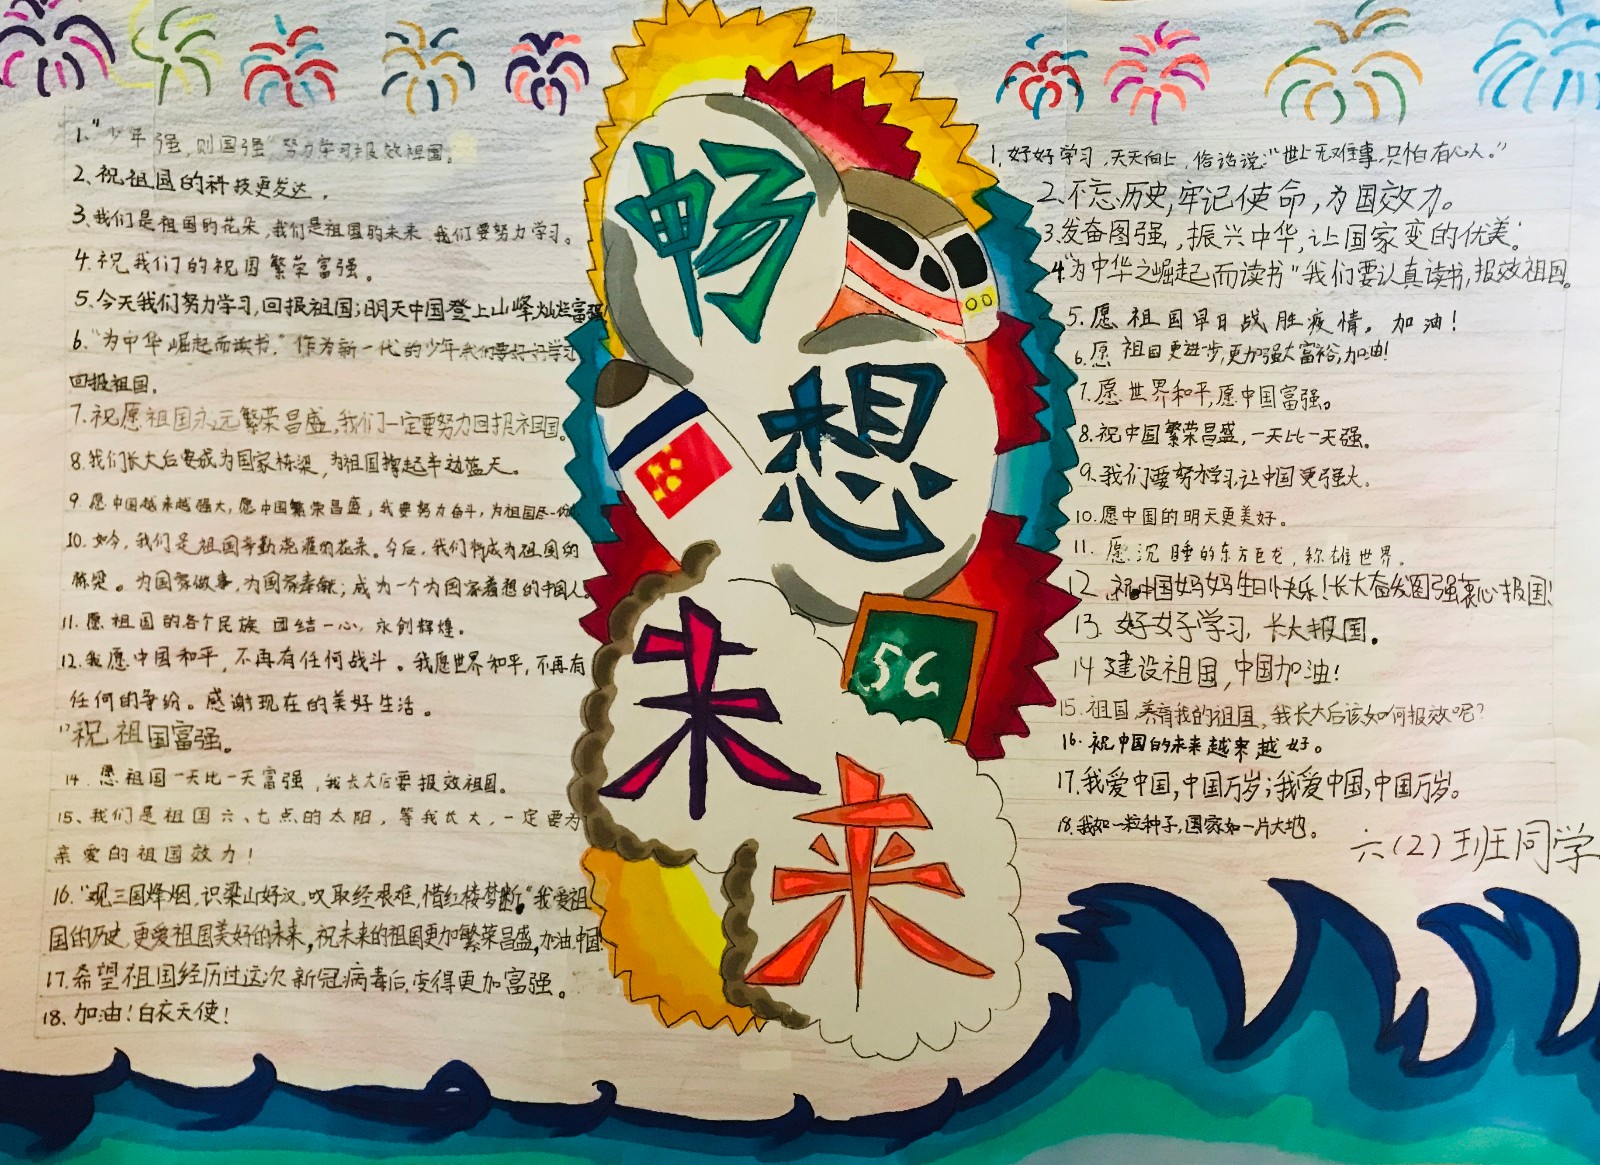 1."少年强,则国强"努力学习报效祖国。
2、祝祖国的科技更发达。
3、我们是祖国的花朵,我们是祖国的未来 我们要努力学习。
4、祝我们的祖国繁荣富强。
5、今天我们努力学习,回报祖国;明天中国登上山峰灿烂富强
6、"为中华崛起而读书."作为新一代的少年我们要好好学习
回报祖国。
7、祝愿祖国永远繁荣昌盛,我们一定要努力回报祖国。
8、我们长大后要成为国家栋梁,为祖国撑起半边蓝天。
9、愿中国越来越强大,愿中国繁荣昌盛,我要努力奋斗,为祖国尽一份
10、如今,我们是祖国辛勤浇灌的花朵。今后,我们将成为祖国的
栋梁。为国家做事,为国家奉献;成为一个为国家着想的中国人。
11、愿祖国的各个民族 团结一心,永创辉煌。
12、我愿中国和平,不再有任何战斗。我愿世界和平,不再有
任何的争纷。感谢现在的美好生活。
祝祖国富强。
14、愿祖国一天比一天富强,我长大后要报效祖国。
15、我们是祖国六、七点的太阳,等我长大,一定要为
亲爱的祖国效力!
16、"观三国烽烟,识梁山好汉,叹取经艰难,惜红楼梦断"我爱祖
国的历史,更爱祖国美好的未来,祝未来的祖国更加繁荣昌盛,加油中国
17、希望祖国经历过这次新冠病毒后,变得更加富强。
18、加油!白衣天使!
畅
想
未
来
5G
1、好好学习,天天向上,俗话说:"世上无难事,只怕有心人。"
2、不忘历史,牢记使命,为国效力。
3、发奋图强,振兴中华,让国家变的优美。
4、"为中华之崛起而读书"我们要认真读书,报效祖国。
5、愿祖国早日战胜疫情。加油!
6、愿祖国更进步,更加强大富裕,加油!
7、愿世界和平,愿中国富强。
8、祝中国繁荣昌盛,一天比一天强。
9、我们要努力学习,让中国更强大。
10、愿中国的明天更美好。
11、愿沉睡的东方巨龙,称雄世界。
12、祝中国妈妈生日快乐!长大奋发图强衷心报国!
13、好好学习,长大报国。
14、建设祖国,中国加油!
15、祖国,养育我的祖国,我长大后该如何报效呢?
16、祝中国的未来越来越好。
17、我爱中国,中国万岁;我爱中国,中国万岁。
18、我如一粒种子,国家如一片大地。
六(2)班同学